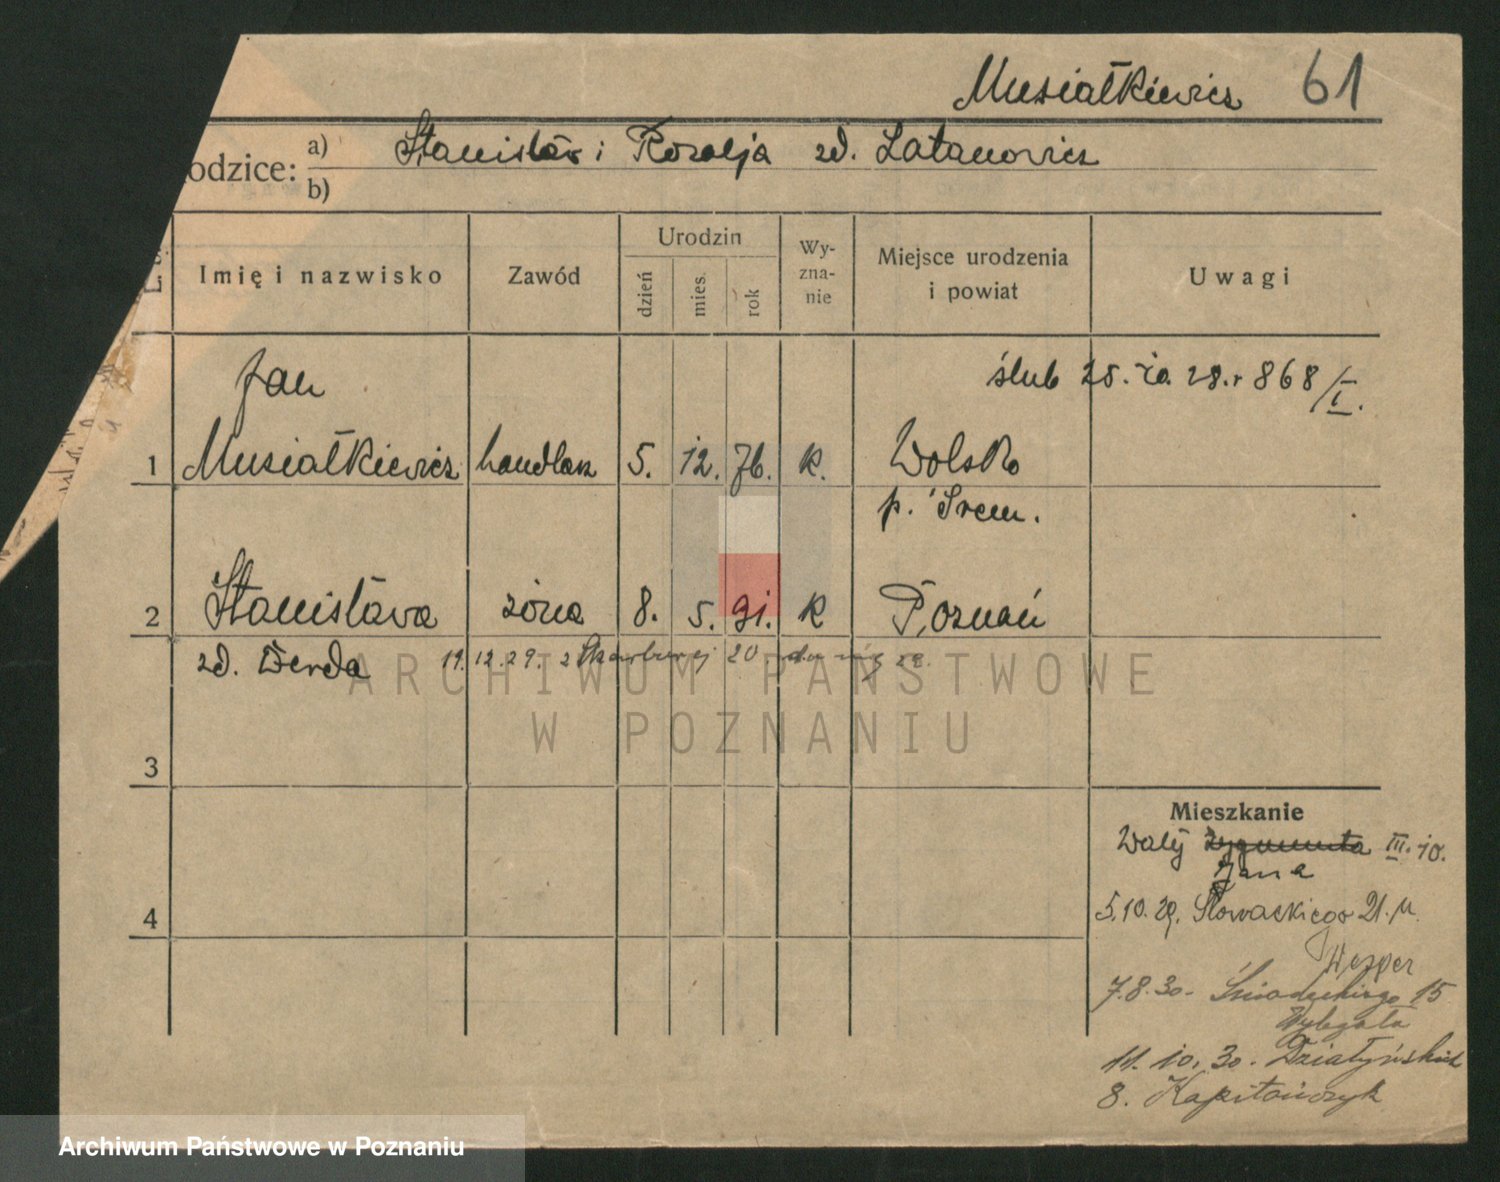 Musiałkiewicz 61
odzice: a) Stanisław i Rozalja zd. Latanowicz
b)
Imię i nazwisko Zawód Urodzin dzień mies. rok Wy-zna-nie Miejsce urodzenia i powiat Uwagi
Jan ślub 28. 868/I.
1 Musiałkiewicz handlarz 5. 12. 76. k. Wolsko
p. Śrem.
2 Stanisława żona 8. 5. 91. k Poznań
zd. Derda 11.12.29. z Skarbowej 20
ARCHIWUM PAŃSTWOWE
W POZNANIU
3
Mieszkanie
Wały Zygmunta III. 10.
Jana
4
5.10.29. Słowackiego 21.
Wesper
7.8.30. Śniadeckiego 15
Wylegała
11.10.30. Działyńskich
8. Kapitańczyk
Archiwum Państwowe w Poznaniu